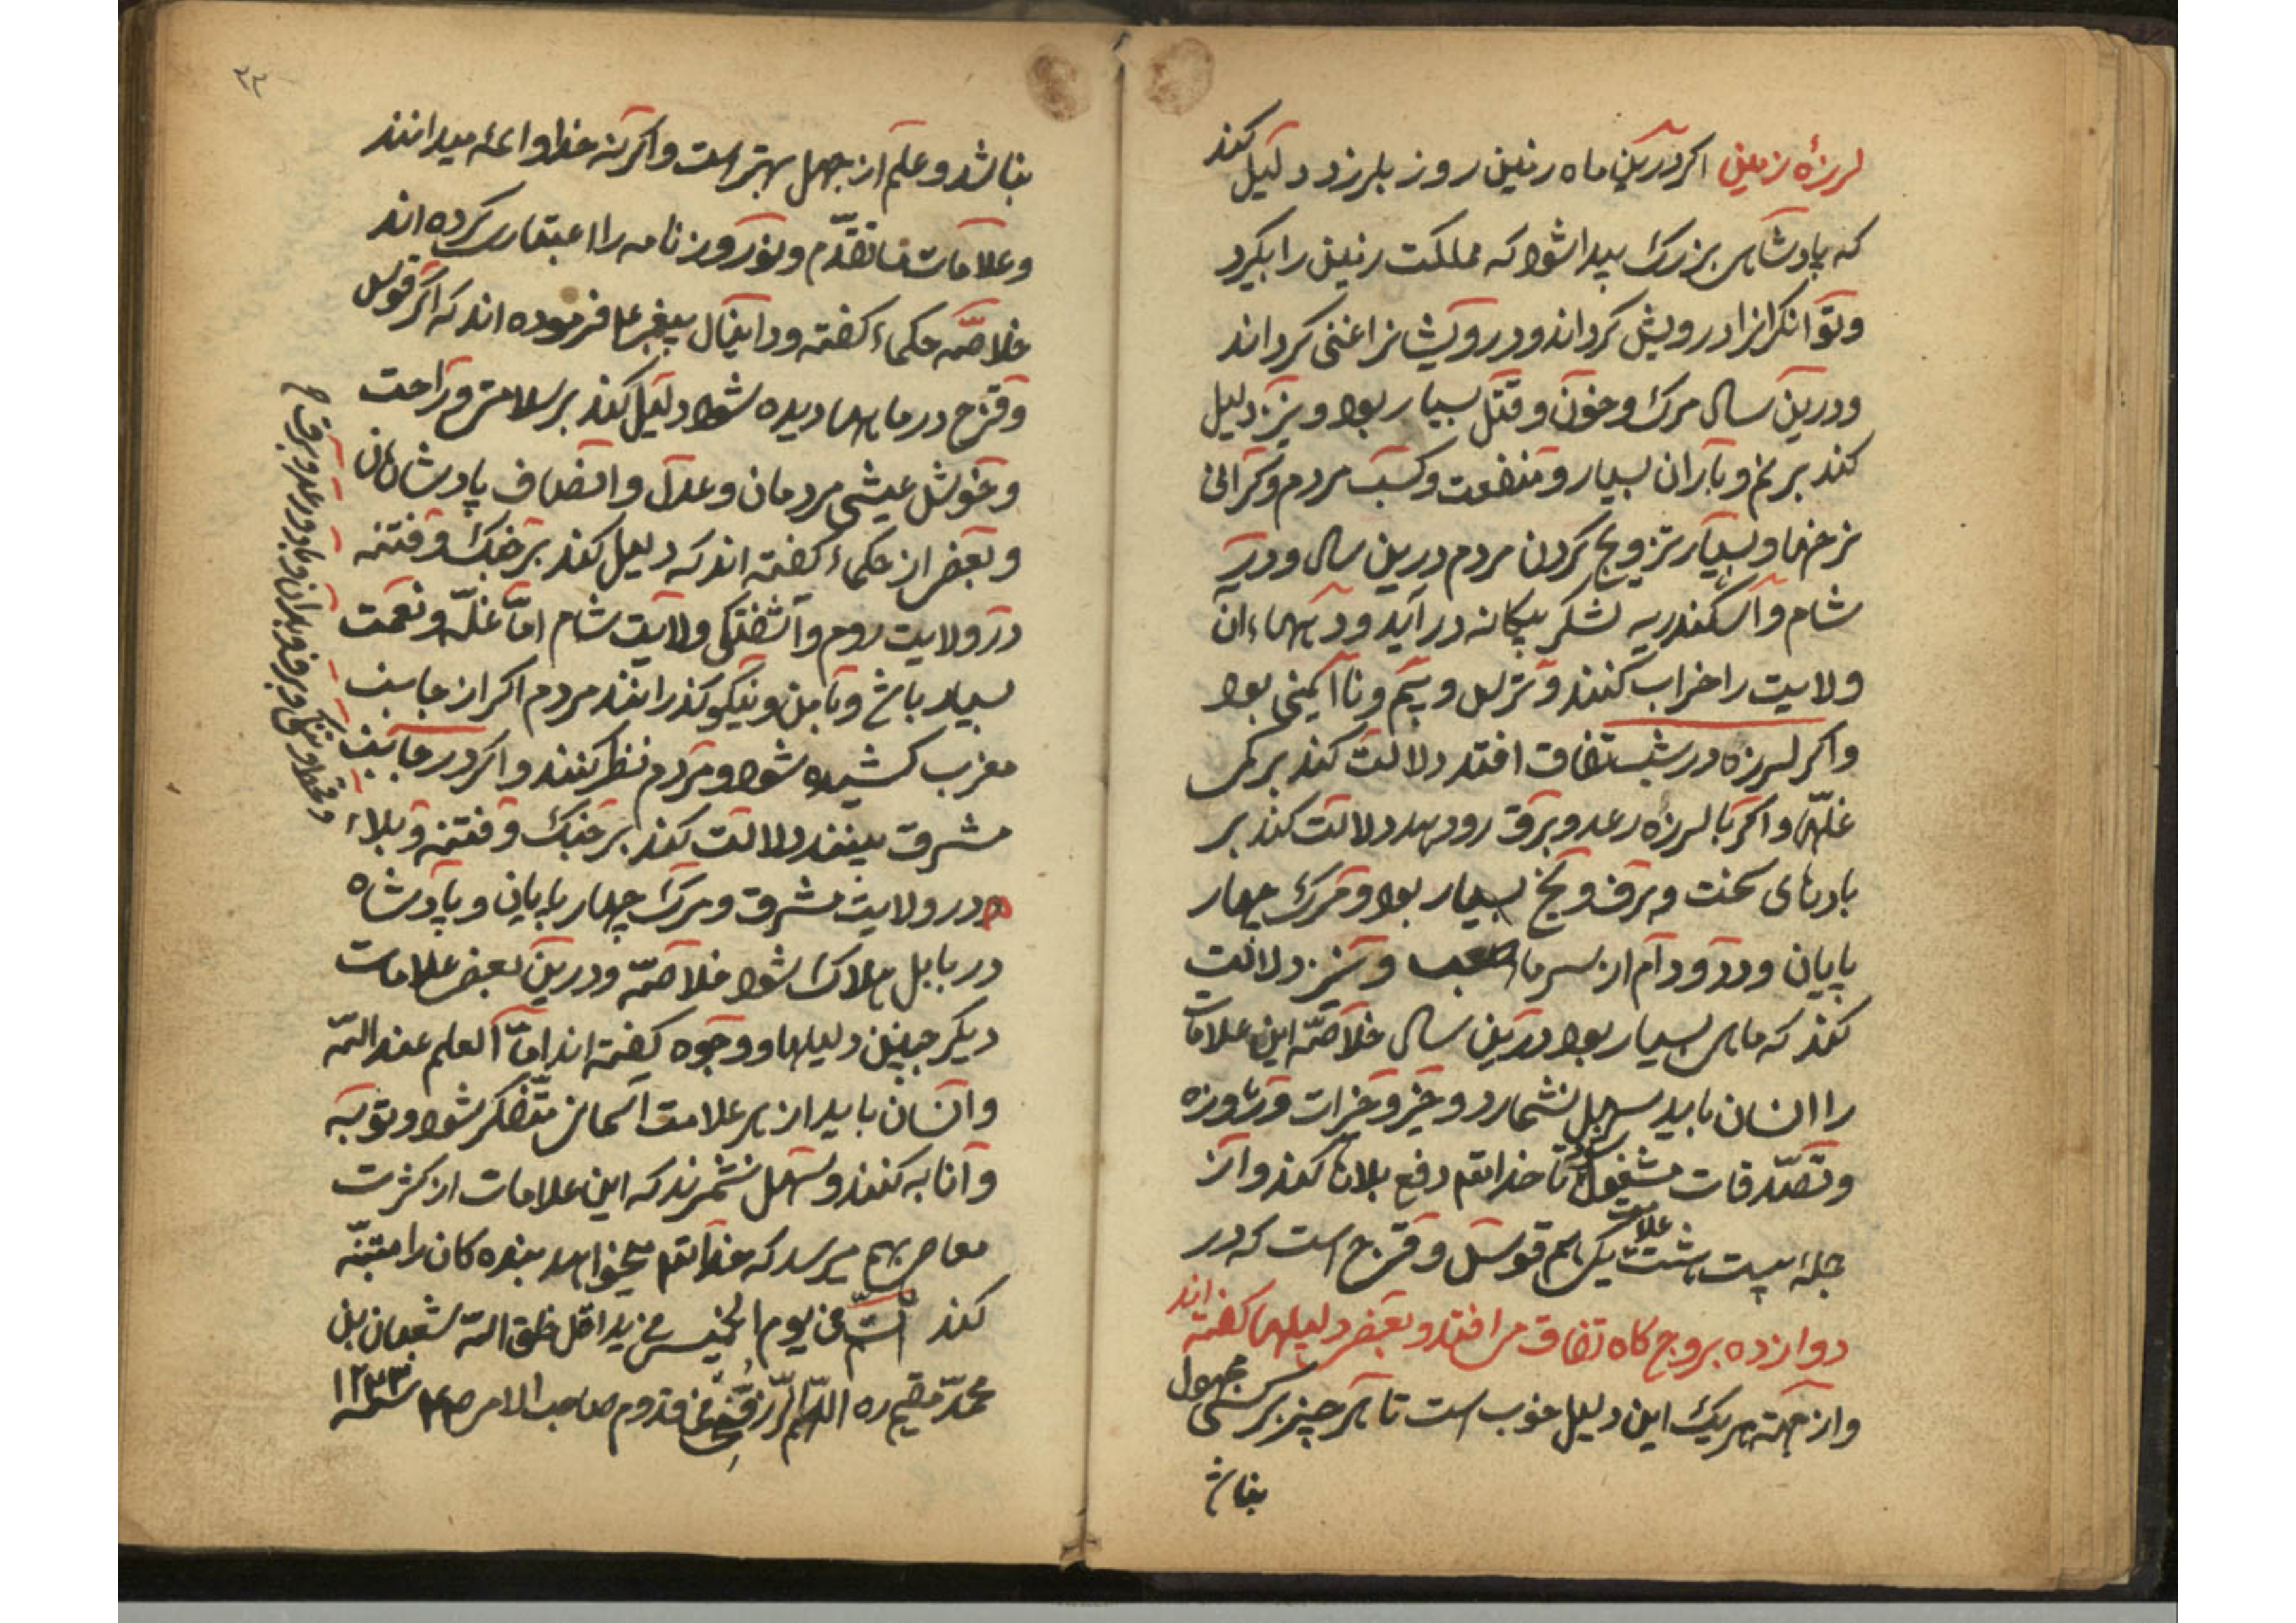 لرزهٔ زمین اکر درین ماه زمین روز بلرزد دلیل کند
که پادشاهی بزرک پیدا شود که مملکت زمین را بکیرد
وتوانکرانرا درویش کرداند ودرویشانرا غنی کرداند
ودرین سال مرک وخون وقتل بسیار بود ونیز دلیل
کند بر نم وباران بسیار ومنفعت وکسب مردم وکرانی
نرخها وبسیار تزویج کردن مردم درین سال ودر
شام واسکندریه لشکر بیکانه در آید ودیهاء ان
ولایت را خراب کنند وتزلزل وبیم ونا ایمنی بود
واکر لرزه در شب تفاق افتد دلالت کند بر کمی
غلّها واکر با لرزه رعد وبرق رودهد دلالت کند بر
بادهای سخت وبرف ویخ بسیار بود ومرک چهار
پایان ودد ودام از سرما صعب ونیز دلالت
کند که ماهی بسیار بود درین سال خلاصّه این علامات
را انسان باید سهل نشمارد وخیر وخیرات وروزه
وتصدّقات مشغول شود تا خداتعم دفع بلاها کند واز
جملهٔ بیست هشت علامت یکی هم قوس وقزح است که در
دوازده بروج کاه تفاق می افتد وبعضی دلیلها کفته اند
واز جهته هریک این دلیل خوب است تا هر چیز بر کسی مجهول
نباشد
نباشد وعلم از جهل بهتر است واکرنه حظ وائمه میدانند
وعلامات ما تقدّم ونوروز نامه را اعتقاد کرده اند
خلاصّه حکماء کفته ودانیال پیغبر ع فرموده اند که اکر قوس
وقزح در ماهها دیده شود دلیل کند بر سلامتی وراحت
وخوش عیشی مردمان وعدل وانصاف پادشاهان
وبعضی از حکماء کفته اند که دلیل کند بر جنک وفتنه
در ولایت روم وآشفتکی ولایت شام امّا غلّه ونعمت
بسیار باشد ونیکو کذرانند مردم اکر از جانب
مغرب کشیده شود ومردم نظر کنند واکر در جانب
مشرق بینند دلالت کند بر جنک وفتنه وبلاء
ودر ولایت مشرق ومرک چهار پایان وپادشاه
در بابل هلاک شود خلاصّه ودرین بعضی علامات
دیکر چنین دلیلها ووجوه کفته اند امّا العلم عند اللّه
وانسان باید از هر علامت آسمانی متفکر شود وتوبه
وانابه کنند وسهل نشمرند که این علامات از کثرت
معاصی بهم میرسد که خداتعم میخواهد بنده کان را متنبّه
کند تمّت فی یوم الخمیس من ید اقل خلق اللّه شعبان بن
محمّد مقیم ره اللّهم الرزقنی قدوم صاحب الامر ص ع سنه ١٢٣٣